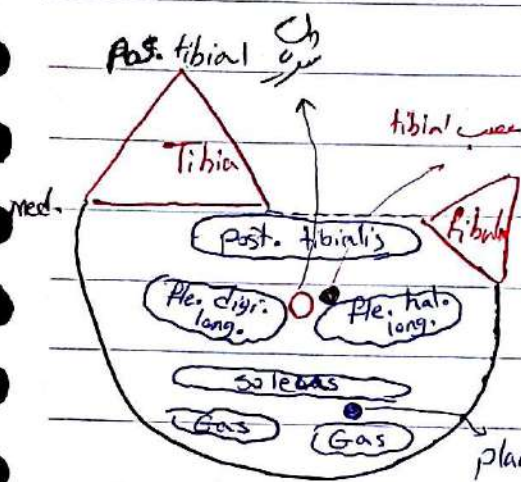 Post. tibial
شريان
tibial عصب
Tibia
med.
fibula
Post. tibialis
fle. digi.
long.
fle. hal.
long.
soleous
Gas
Gas
plan